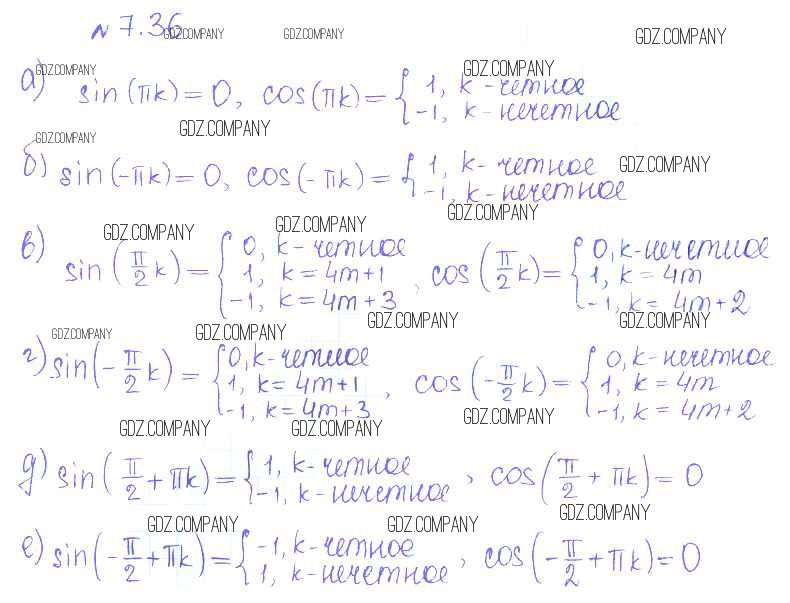 № 7.36 GDZ.COMPANY GDZ.COMPANY GDZ.COMPANY
GDZ.COMPANY GDZ.COMPANY
а) sin(πk) = 0, cos(πk) = { 1, k - четное
-1, k - нечетное
GDZ.COMPANY
GDZ.COMPANY
б) sin(-πk) = 0, cos(-πk) = { 1, k - четное GDZ.COMPANY
-1, k - нечетное
GDZ.COMPANY GDZ.COMPANY GDZ.COMPANY
в) sin(π/2 k) = { 0, k - четное
1, k = 4m+1
-1, k = 4m+3
, cos(π/2 k) = { 0, k - нечетное
1, k = 4m
-1, k = 4m+2
GDZ.COMPANY GDZ.COMPANY
GDZ.COMPANY GDZ.COMPANY
г) sin(-π/2 k) = { 0, k - четное
1, k = 4m+1
-1, k = 4m+3
, cos(-π/2 k) = { 0, k - нечетное
1, k = 4m
-1, k = 4m+2
GDZ.COMPANY GDZ.COMPANY GDZ.COMPANY
д) sin(π/2 + πk) = { 1, k - четное
-1, k - нечетное
, cos(π/2 + πk) = 0
GDZ.COMPANY GDZ.COMPANY GDZ.COMPANY
е) sin(-π/2 + πk) = { -1, k - четное
1, k - нечетное
, cos(-π/2 + πk) = 0